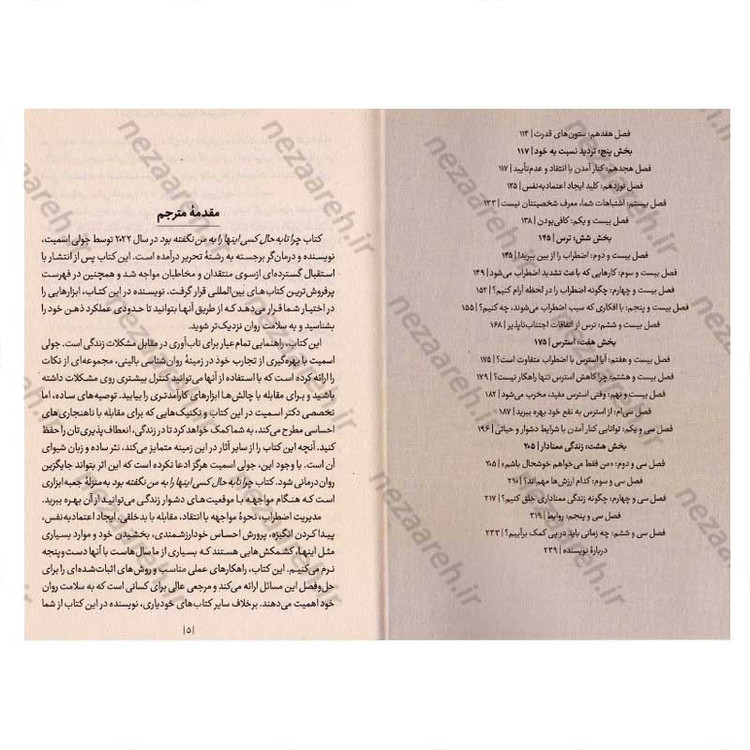 فصل هفدهم: ستون‌های قدرت | ۱۱۴
بخش پنج: تردید نسبت به خود | ۱۱۷
فصل هجدهم: کنار آمدن با انتقاد و عدم‌تأیید | ۱۱۷
فصل نوزدهم: کلید ایجاد اعتمادبه‌نفس | ۱۲۵
فصل بیستم: اشتباهات شما، معرف شخصیتتان نیست | ۱۳۳
فصل بیست و یکم: کافی‌بودن | ۱۳۸
بخش شش: ترس | ۱۴۵
فصل بیست و دوم: اضطراب را از بین ببرید! | ۱۴۵
فصل بیست و سوم: کارهایی که باعث تشدید اضطراب می‌شود | ۱۴۹
فصل بیست و چهارم: چگونه اضطراب را در لحظه آرام کنیم؟ | ۱۵۲
فصل بیست و پنجم: با افکاری که سبب اضطراب می‌شوند، چه کنیم؟ | ۱۵۵
فصل بیست و ششم: ترس از اتفاقات اجتناب‌ناپذیر | ۱۶۸
بخش هفت: استرس | ۱۷۵
فصل بیست و هفتم: آیا استرس با اضطراب متفاوت است؟ | ۱۷۵
فصل بیست و هشتم: چرا کاهش استرس تنها راهکار نیست؟ | ۱۷۹
فصل بیست و نهم: وقتی استرس مفید، مخرب می‌شود | ۱۸۲
فصل سی‌ام: از استرس به نفع خود بهره ببرید | ۱۸۷
فصل سی و یکم: توانایی کنار آمدن با شرایط دشوار و حیاتی | ۱۹۶
بخش هشت: زندگی معنادار | ۲۰۵
فصل سی و دوم: «من فقط می‌خواهم خوشحال باشم» | ۲۰۵
فصل سی و سوم: کدام ارزش‌ها مهم‌اند؟ | ۲۱۰
فصل سی و چهارم: چگونه زندگی معناداری خلق کنیم؟ | ۲۱۷
فصل سی و پنجم: روابط | ۲۱۹
فصل سی و ششم: چه زمانی باید در پی کمک برآییم؟ | ۲۳۳
دربارهٔ نویسنده | ۲۳۹
مقدمهٔ مترجم
کتاب چرا تا به حال کسی اینها را به من نگفته بود در سال ۲۰۲۲ توسط جولی اسمیت،
نویسنده و درمان‌گر برجسته به رشتهٔ تحریر درآمده است. این کتاب پس از انتشار با
استقبال گسترده‌ای ازسوی منتقدان و مخاطبان مواجه شد و همچنین در فهرست
پرفروش‌ترین کتاب‌های بین‌المللی قرار گرفت. نویسنده در این کتاب، ابزارهایی را
در اختیار شما قرار می‌دهد که از طریق آنها بتوانید تا حدودی عملکرد ذهن خود را
بشناسید و به سلامت روان نزدیک‌تر شوید.
این کتاب، راهنمایی تمام عیار برای تاب‌آوری در مقابل مشکلات زندگی است. جولی
اسمیت با بهره‌گیری از تجارب خود در زمینهٔ روان‌شناسی بالینی، مجموعه‌ای از نکات
را ارائه کرده است که با استفاده از آنها می‌توانید کنترل بیشتری روی مشکلات داشته
باشید و برای مقابله با چالش‌ها ابزارهای کارآمدتری را بیابید. توصیه‌های ساده، اما
تخصصی دکتر اسمیت در این کتاب و تکنیک‌هایی که برای مقابله با ناهنجاری‌های
احساسی مطرح می‌کند، به شما کمک خواهد کرد تا در زندگی، انعطاف‌پذیری‌تان را حفظ
کنید. آنچه این کتاب را از سایر آثار در این زمینه متمایز می‌کند، نثر ساده و زبان شیوای
آن است. با وجود این، جولی اسمیت هرگز ادعا نکرده است که این اثر بتواند جایگزین
روان‌درمانی شود. کتاب چرا تا به حال کسی اینها را به من نگفته بود به‌منزلهٔ جعبه ابزاری
است که هنگام مواجهه با موقعیت‌های دشوار زندگی می‌توانید از آن بهره ببرید.
مدیریت اضطراب، نحوهٔ مواجهه با انتقاد، مقابله با بدخلقی، ایجاد اعتمادبه‌نفس،
پیدا کردن انگیزه، پرورش احساس خودارزشمندی، بخشیدن خود و موارد بسیاری
مثل اینها، کشمکش‌هایی هستند که بسیاری از ما سال‌هاست با آنها دست‌وپنجه
نرم می‌کنیم. این کتاب، راهکارهای عملی مناسب و روش‌های اثبات‌شده‌ای را برای
حل‌وفصل این مسائل ارائه می‌کند و مرجعی عالی برای کسانی است که به سلامت روان
خود اهمیت می‌دهند. برخلاف سایر کتاب‌های خودیاری، نویسنده در این کتاب از شما
| ۵ |
nezaareh.ir